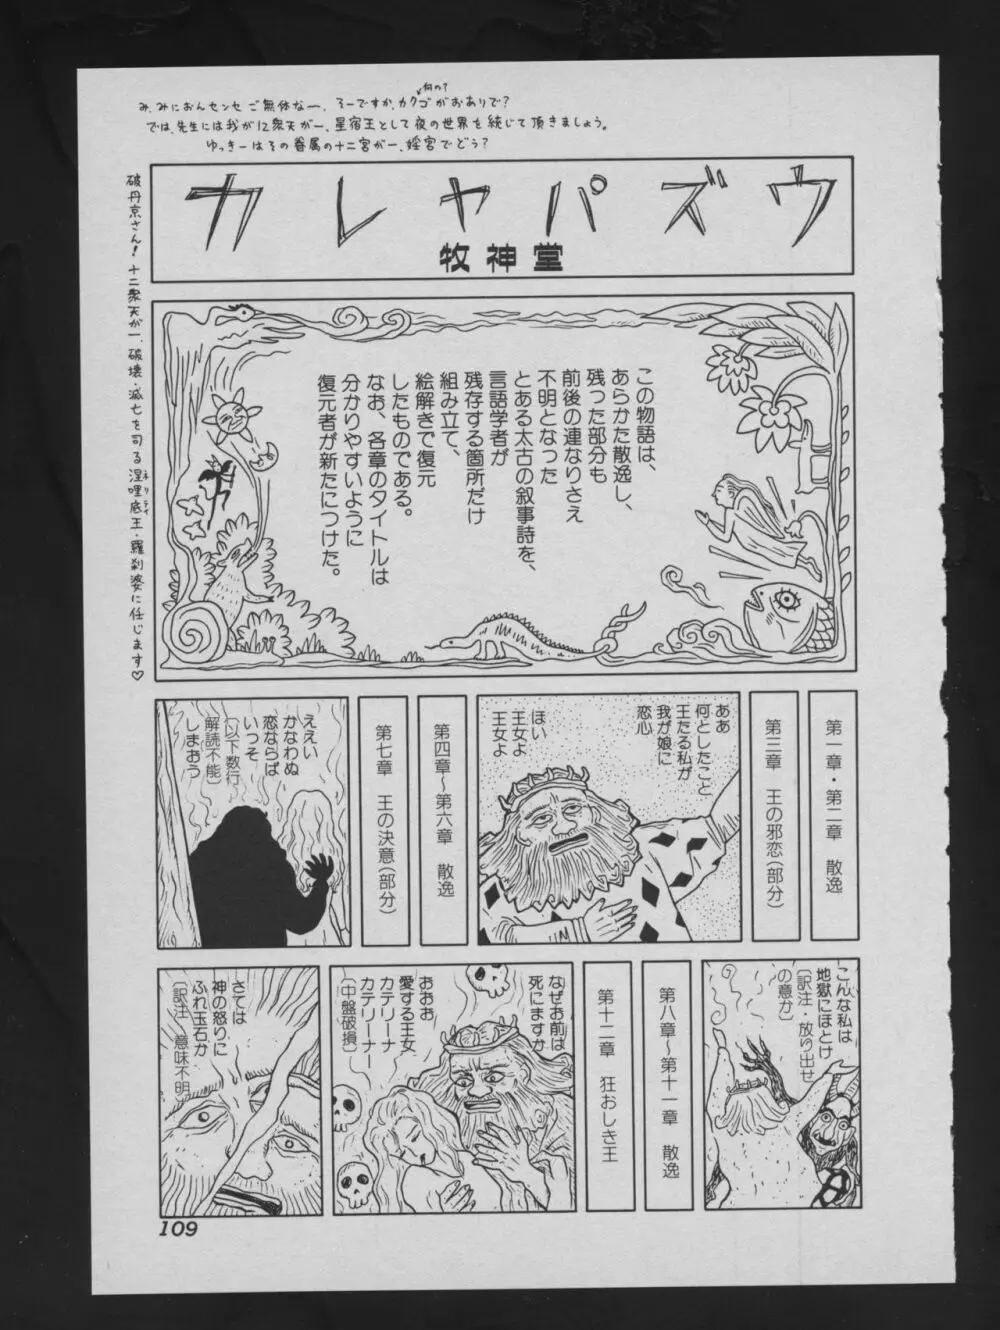 何の?
み、みにおんセンセご無体なー、そーですか、カクゴがおありで?
では、先生には我が12衆天が一、星宿王として夜の世界を統じて頂きましょう。
ゆっきーはその眷属の十二宮が一、婬宮でどう?
破丹京さん!十二衆天が一、破壊・滅亡を司る涅哩底王・羅刹婆に任じます♡
ネリティ
カレヤパズウ
牧神堂
この物語は、
あらかた散逸し、
残った部分も
前後の連なりさえ
不明となった
とある太古の叙事詩を、
言語学者が
残存する箇所だけ
組み立て、
絵解きで復元
したものである。
なお、各章のタイトルは
分かりやすいように
復元者が新たにつけた。
第一章・第二章 散逸
第三章 王の邪恋(部分)
ああ
何としたこと
王たる私が
我が娘に
恋心
ほい
王女よ
王女よ
第四章〜第六章 散逸
第七章 王の決意(部分)
ええい
かなわぬ
恋ならば
いっそ
〔以下数行
解読不能〕
しまおう
こんな私は
地獄にほとけ
〔訳注・放り出せ
の意か〕
第八章〜第十一章 散逸
第十二章 狂おしき王
なぜお前は
死にますか
おおお
愛する王女
カテリーナ
カテリーナー
〔中盤破損〕
さては
神の怒りに
ふれ玉石か
〔訳注 意味不明〕
109